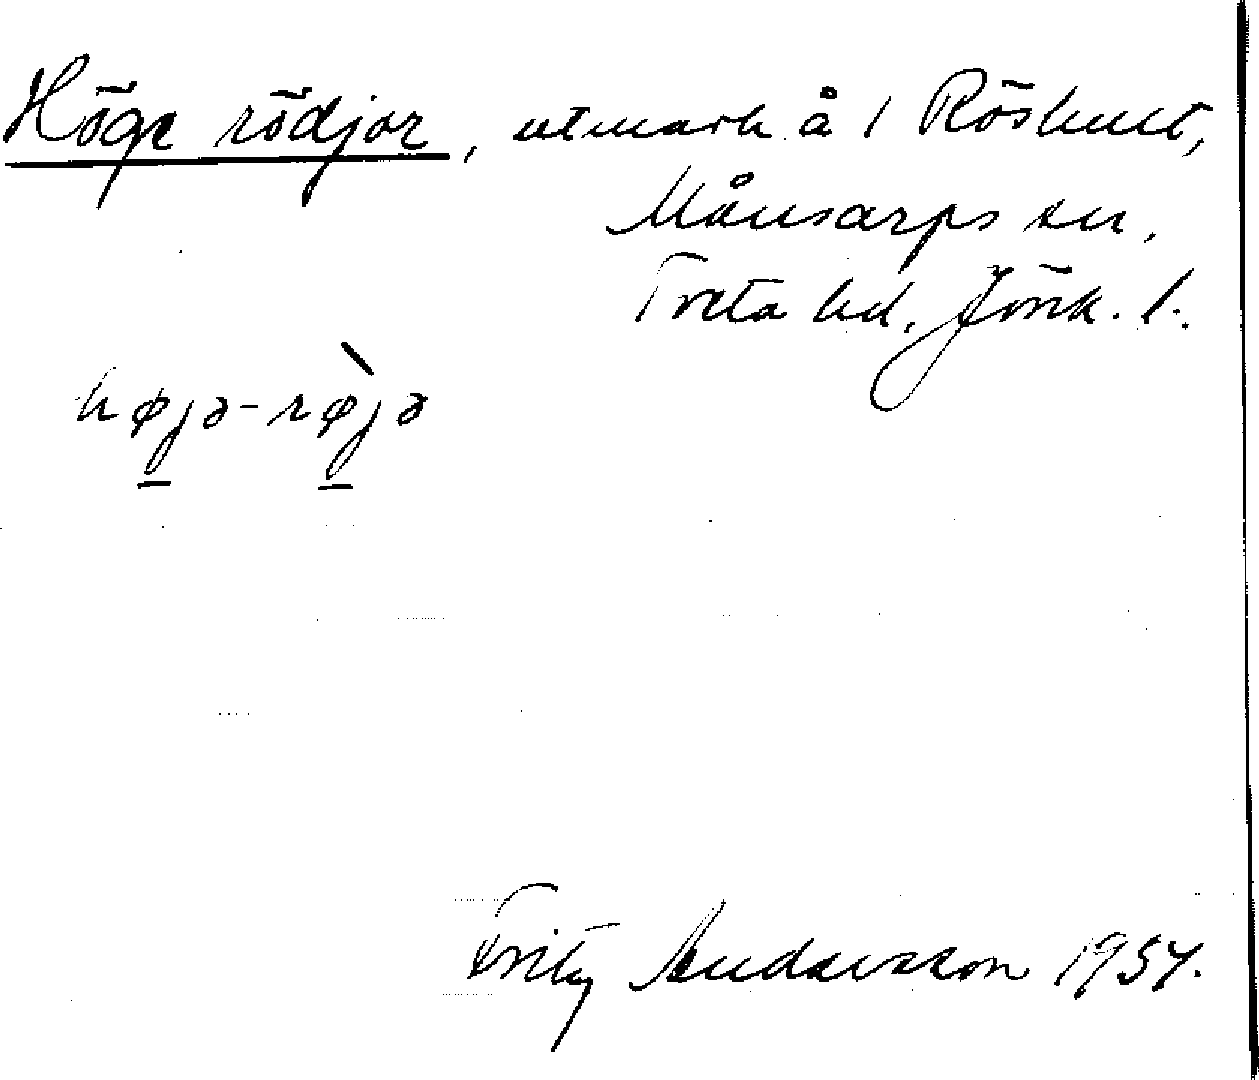 Höge rödjor, utmark å 1 Röshult,
Månsarps sn,
Tveta hd, Jönk. l.
højə-røjə
Fritz Andersson 1954.